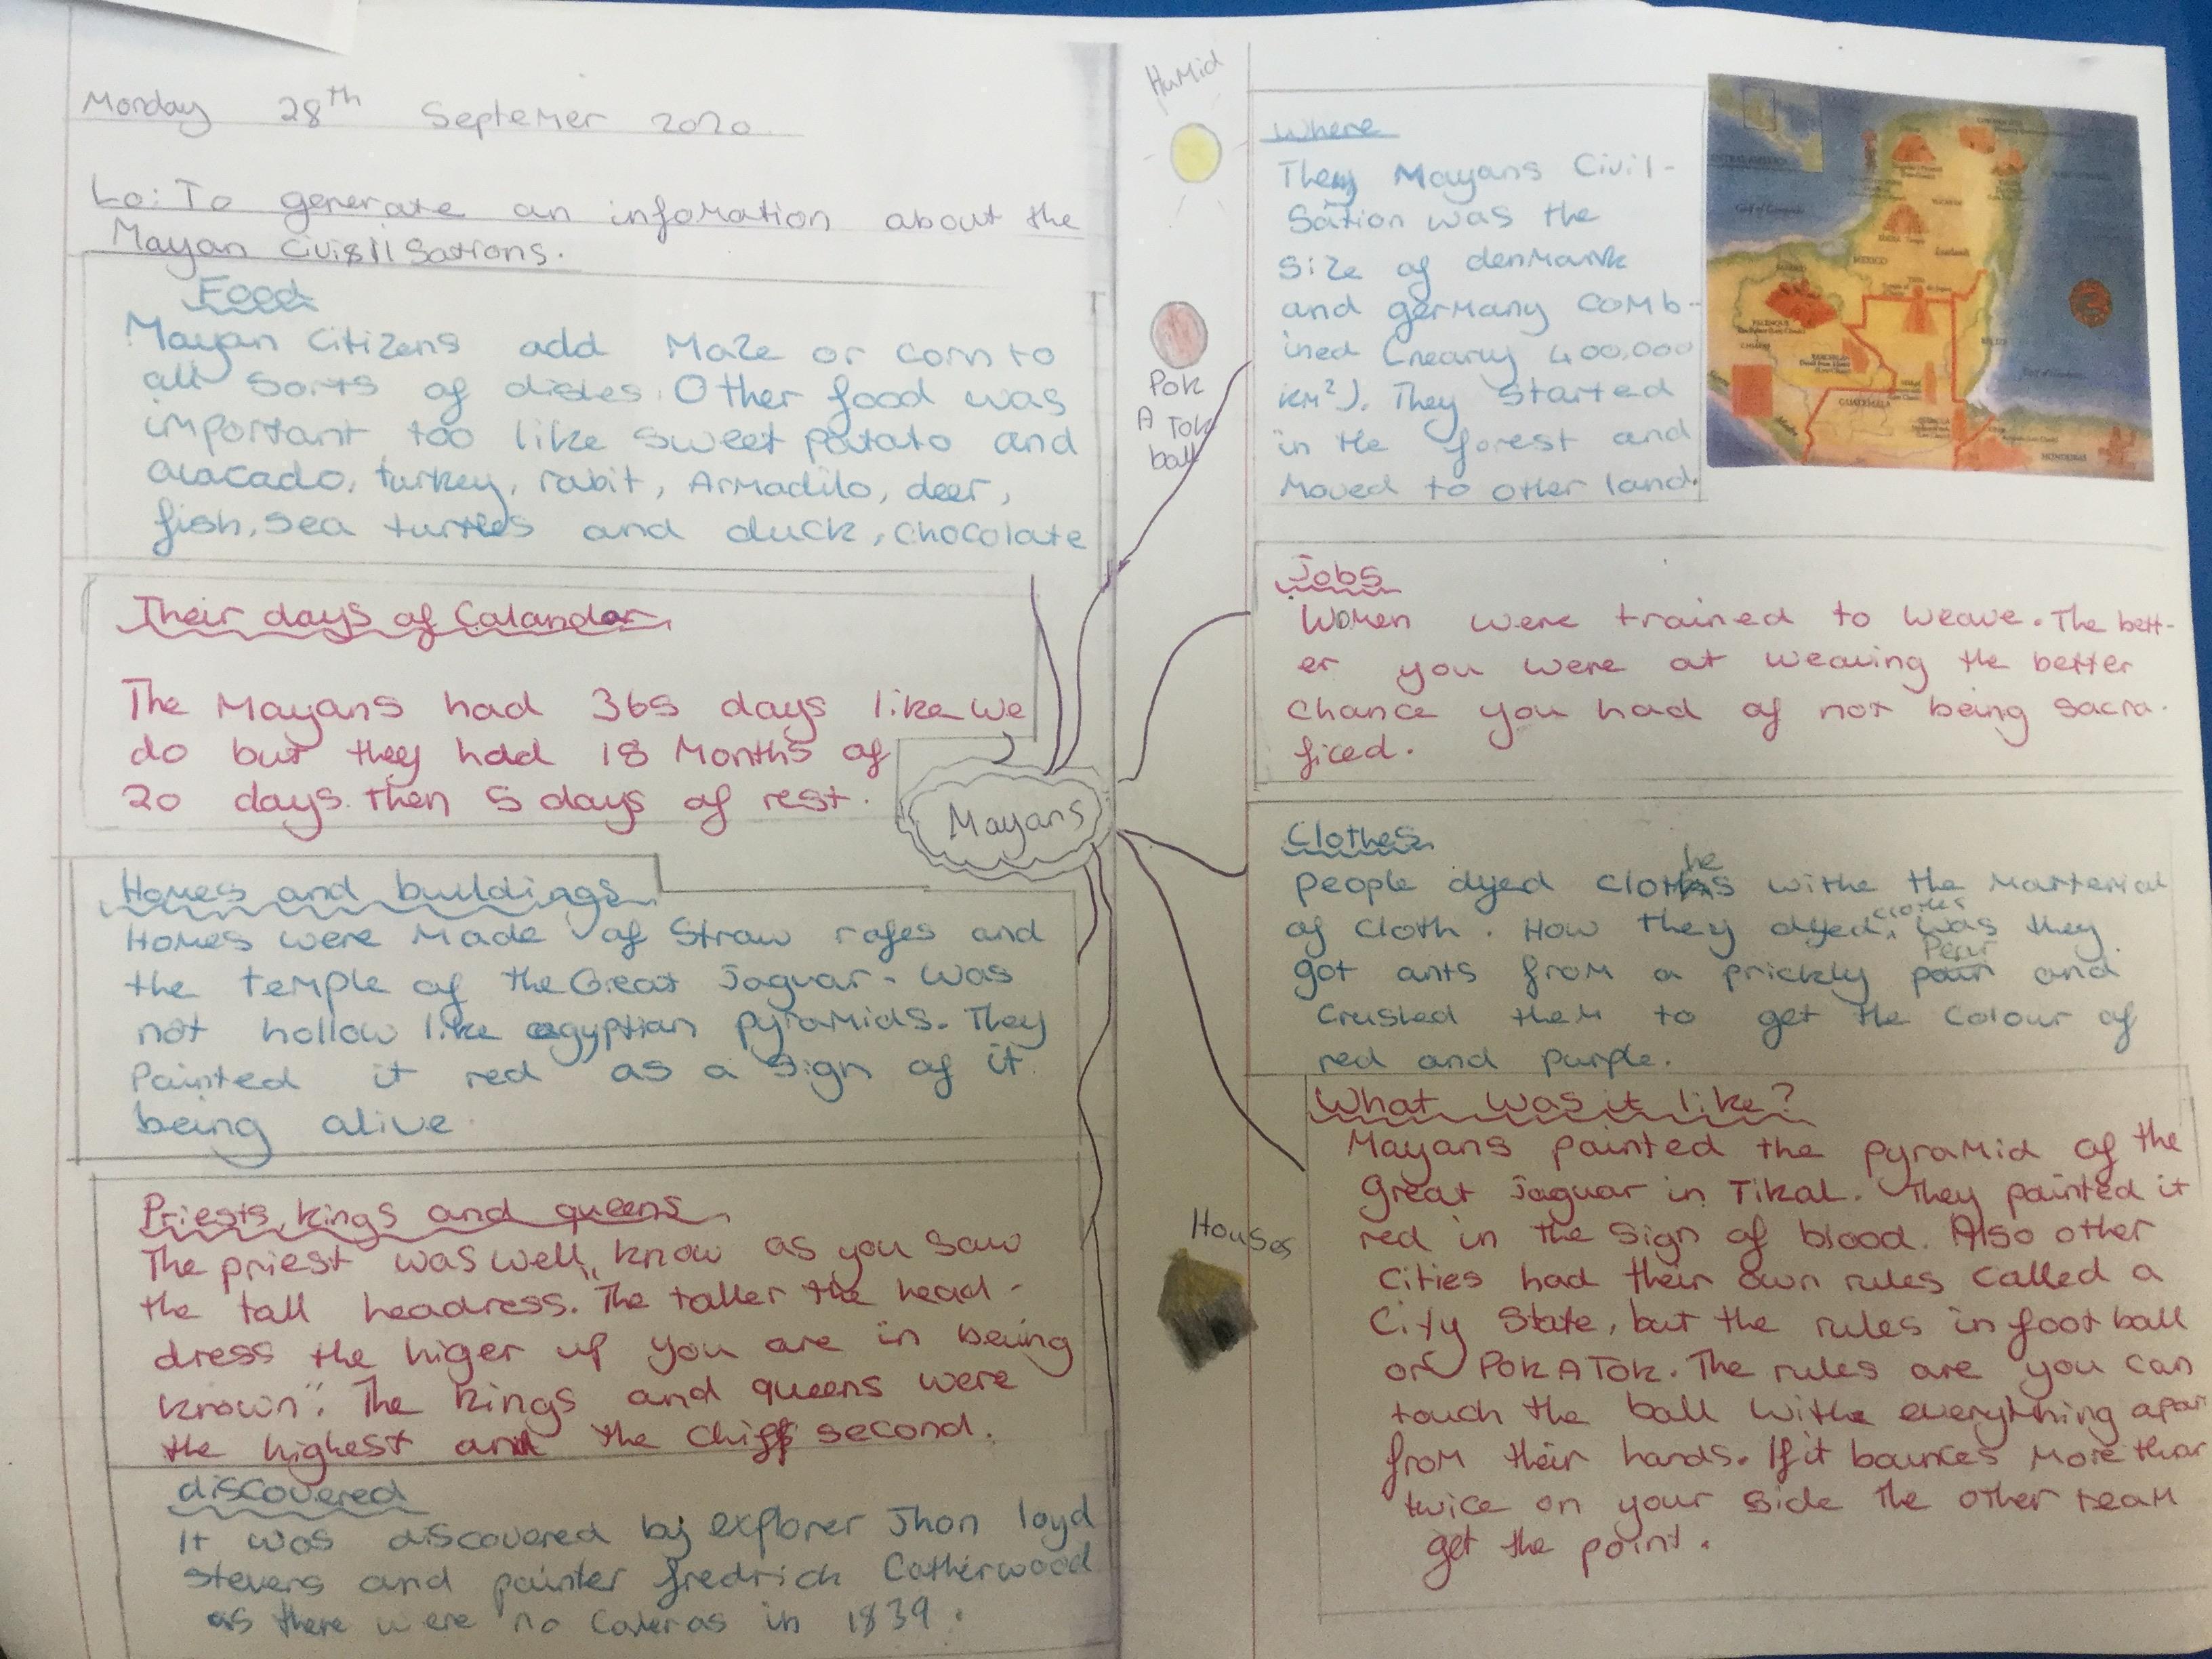 Monday 28th Septemer 2020
Lo: To generate an infomation about the
Mayan Civisilisations.
Food
Mayan Citizens add Maze or corn to
all sorts of dishes. Other food was
important too like sweet potato and
avacado, turkey, rabit, Armadilo, deer,
fish, sea turtles and duck, chocolate
Their days of Calandar
The Mayans had 365 days like we
do but they had 18 Months of
20 days. Then 5 days of rest.
Homes and buildings
Homes were made of Straw rofes and
the temple of the Great Jaguar - was
not hollow like egyptian pyramids. They
Painted it red as a sign of it
being alive
Priests, kings and queens
The priest was well, know as you saw
the tall headress. "The taller the head-
dress the higer up you are in being
known". The kings and queens were
the highest and the chiff second.
discovered
It was discovered by explorer Jhon loyd
stevens and painter fredrich Catherwood
as there were no cameras in 1839.
Mayans
Humid
Pok
A Tok
ball
Houses
Where
They Mayans Civil-
sation was the
size of denmark
and germany comb-
ined (nearly 400,000
km²). They started
in the forest and
moved to other land.
GUATEMALA
HONDURAS
MEXICO
Jobs
Women were trained to weave. The bett-
er you were at weaving the better
chance you had of not being sacra-
ficed.
Clothes
People dyed clothes withe the Marterial
of cloth. How they dyed clothes was they
got ants from a prickly pear and
crushed them to get the colour of
red and purple.
What was it like?
Mayans painted the pyramid of the
great Jaguar in Tikal. They painted it
red in the sign of blood. Also other
cities had their own rules called a
City State, but the rules in foot ball
or POK A TOK. The rules are you can
touch the ball withe everything apart
from their hands. If it bounces more than
twice on your side the other team
get the point.